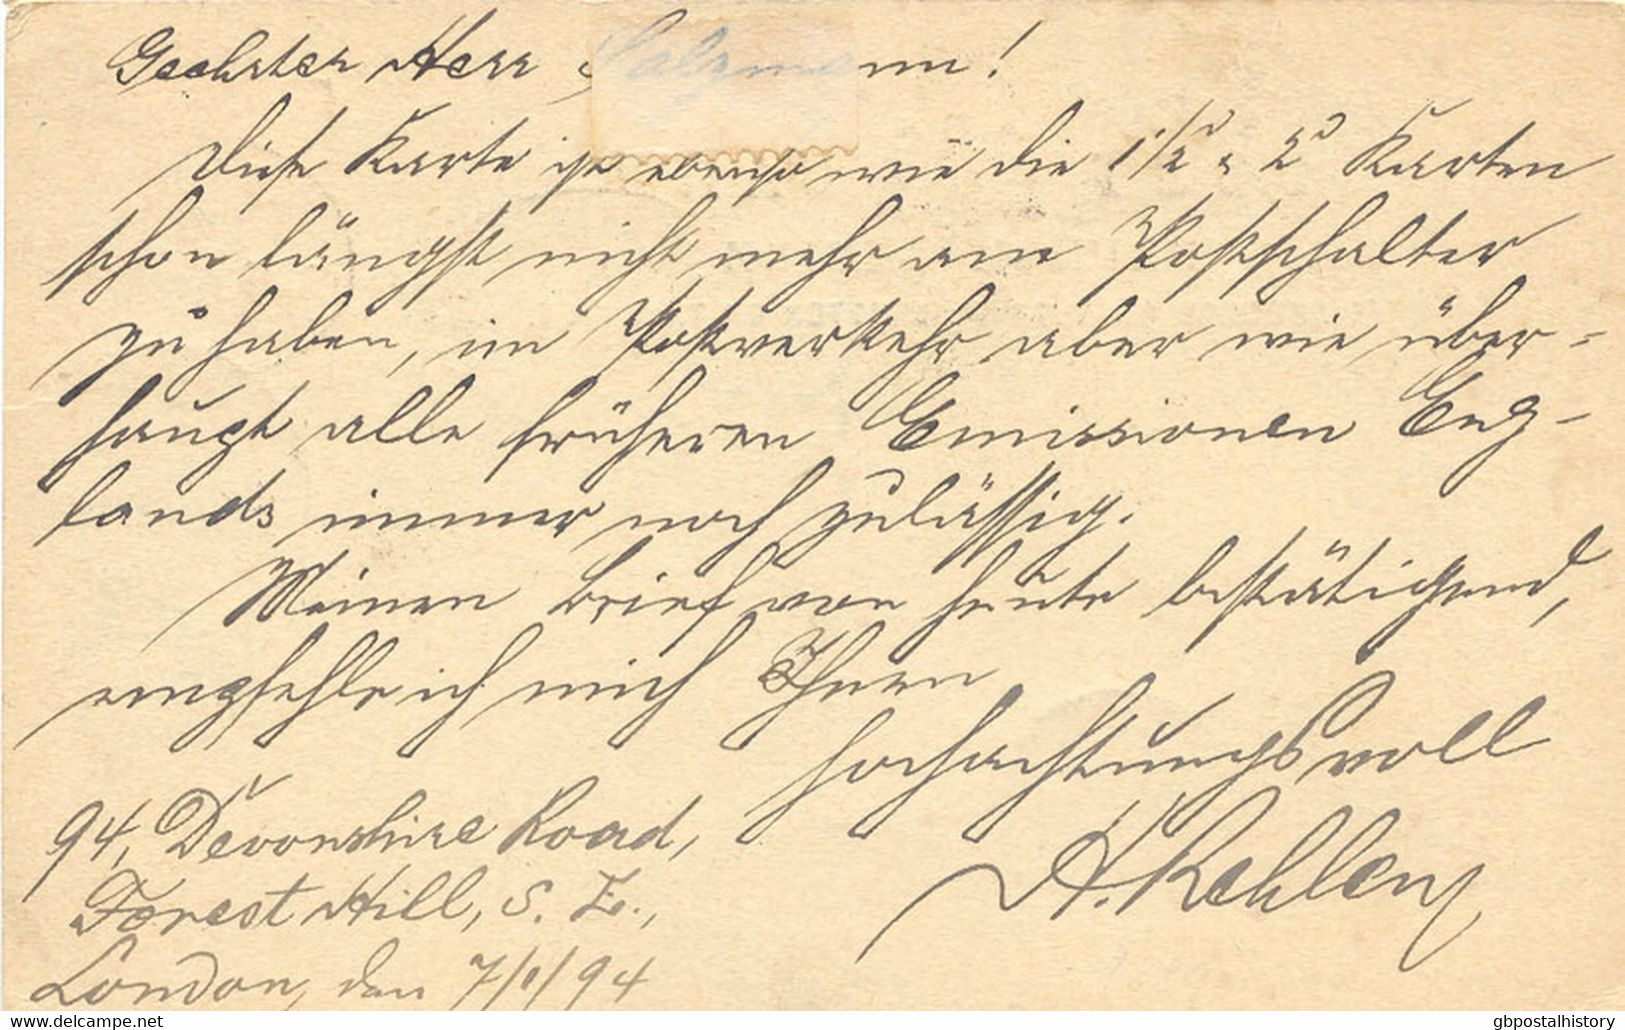 Geehrter Herr Salzmann!
Diese Karte ist ebenso wie die 1 1/2d & 2d Karten
schon längst nicht mehr am Postschalter
zu haben, im Postverkehr aber wie über-
haupt alle früheren Emissionen Eng-
lands immer noch zulässig.
Meinen Brief von heute bestätigend,
empfehle ich mich Ihnen
hochachtungsvoll
94, Devonshire Road,
Forest Hill, S. E.,
London, den 7/1/94
gbpostalhistory